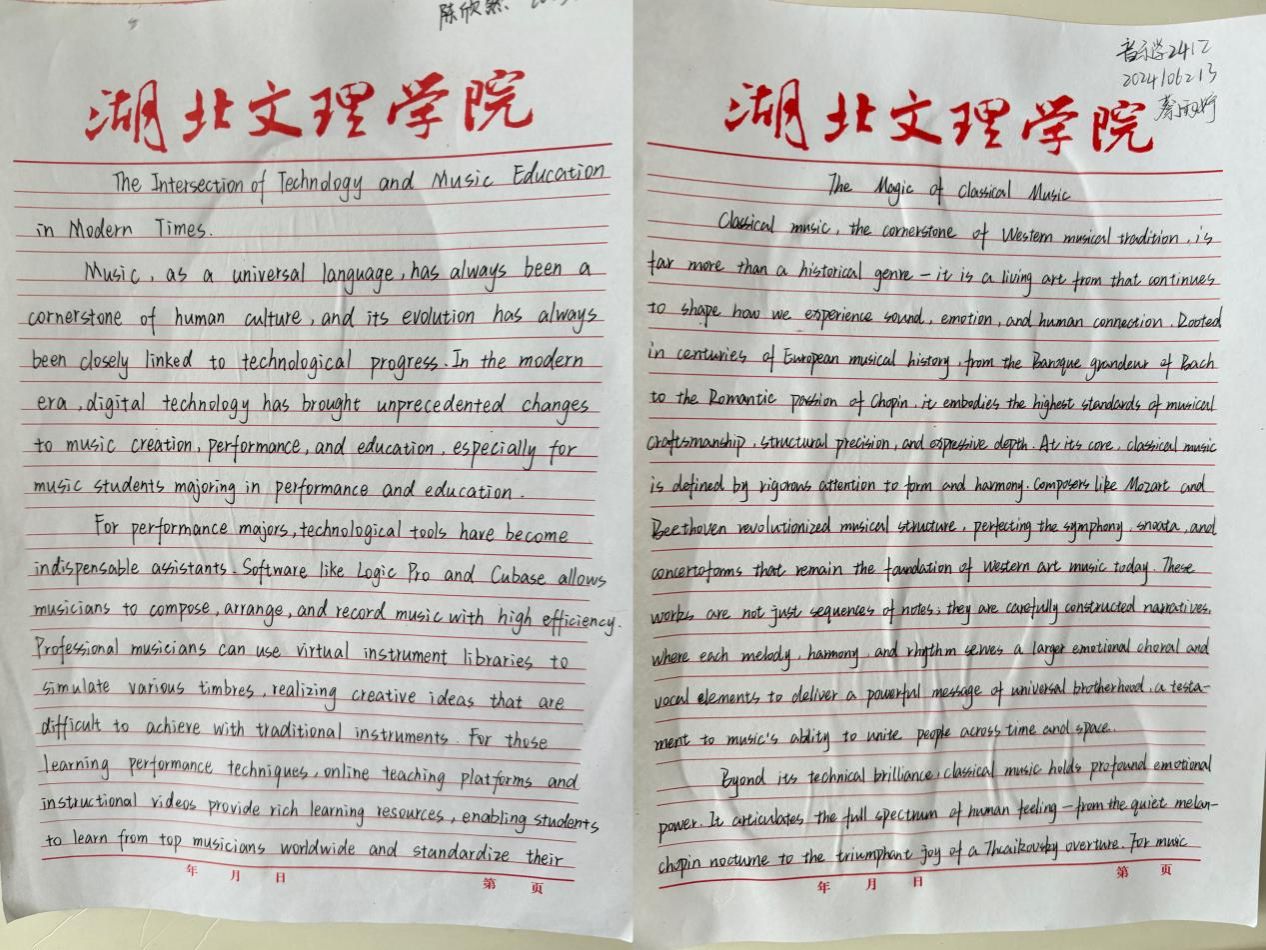 陈欣然
湖北文理学院
The Intersection of Technology and Music Education
in Modern Times.
Music, as a universal language, has always been a
cornerstone of human culture, and its evolution has always
been closely linked to technological progress. In the modern
era, digital technology has brought unprecedented changes
to music creation, performance, and education, especially for
music students majoring in performance and education.
For performance majors, technological tools have become
indispensable assistants. Software like Logic Pro and Cubase allows
musicians to compose, arrange, and record music with high efficiency.
Professional musicians can use virtual instrument libraries to
simulate various timbres, realizing creative ideas that are
difficult to achieve with traditional instruments. For those
learning performance techniques, online teaching platforms and
instructional videos provide rich learning resources, enabling students
to learn from top musicians worldwide and standardize their
年 月 日 第 页
音乐学2412
2024106213
蔡
湖北文理学院
The Magic of Classical Music
Classical music, the cornerstone of Western musical tradition, is
far more than a historical genre — it is a living art from that continues
to shape how we experience sound, emotion, and human connection. Rooted
in centuries of European musical history, from the Baroque grandeur of Bach
to the Romantic passion of Chopin, it embodies the highest standards of musical
craftsmanship, structural precision, and expressive depth. At its core, classical music
is defined by rigorous attention to form and harmony. Composers like Mozart and
Beethoven revolutionized musical structure, perfecting the symphony, snoata, and
concertoforms that remain the foundation of Western art music today. These
works are not just sequences of notes; they are carefully constructed narratives,
where each melody, harmony, and rhythm serves a larger emotional choral and
vocal elements to deliver a powerful message of universal brotherhood, a testa-
ment to music's ability to unite people across time and space.
Byond its technical brilliance, classical music holds profound emotional
power. It articulates the full spectrum of human feeling — from the quiet melan-
chopin nocturne to the triumphant joy of a Thcaikovsky overture. For music
年 月 日 第 页